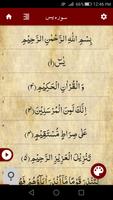 12:46 AM
سوره یس
بِسْمِ اللَّهِ الرَّحْمَٰنِ الرَّحِيْمِ
يٰسٓ (۱)
وَالْقُرْآنِ الْحَكِيْمِ (۲)
اِنَّكَ لَمِنَ الْمُرْسَلِيْنَ (۳)
عَلٰی صِرَاطٍ مُّسْتَقِيْمٍ (۴)
تَنْزِيْلَ الْعَزِيْزِ الرَّحِيْمِ (۵)